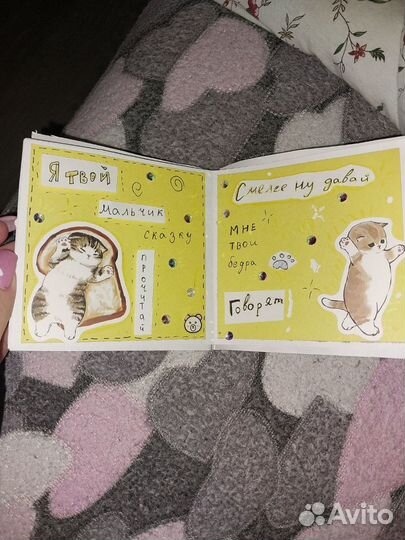 Я твой
мальчик
сказку
прочитай
Смелее ну давай
мне
твои
бедра
Говорят
Avito